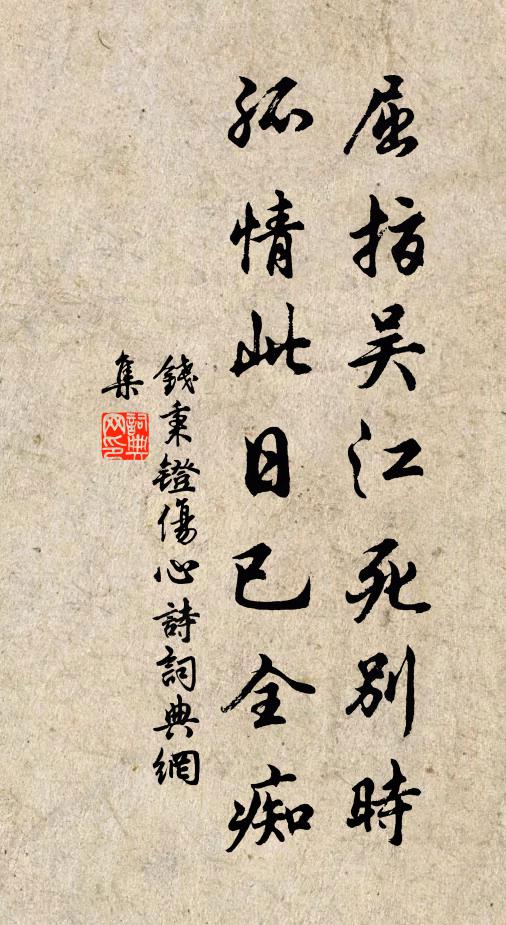 屈指吴江死別時
孤情此日已全痴
錢秉鐙傷心詩詞典網
集
詞典网印